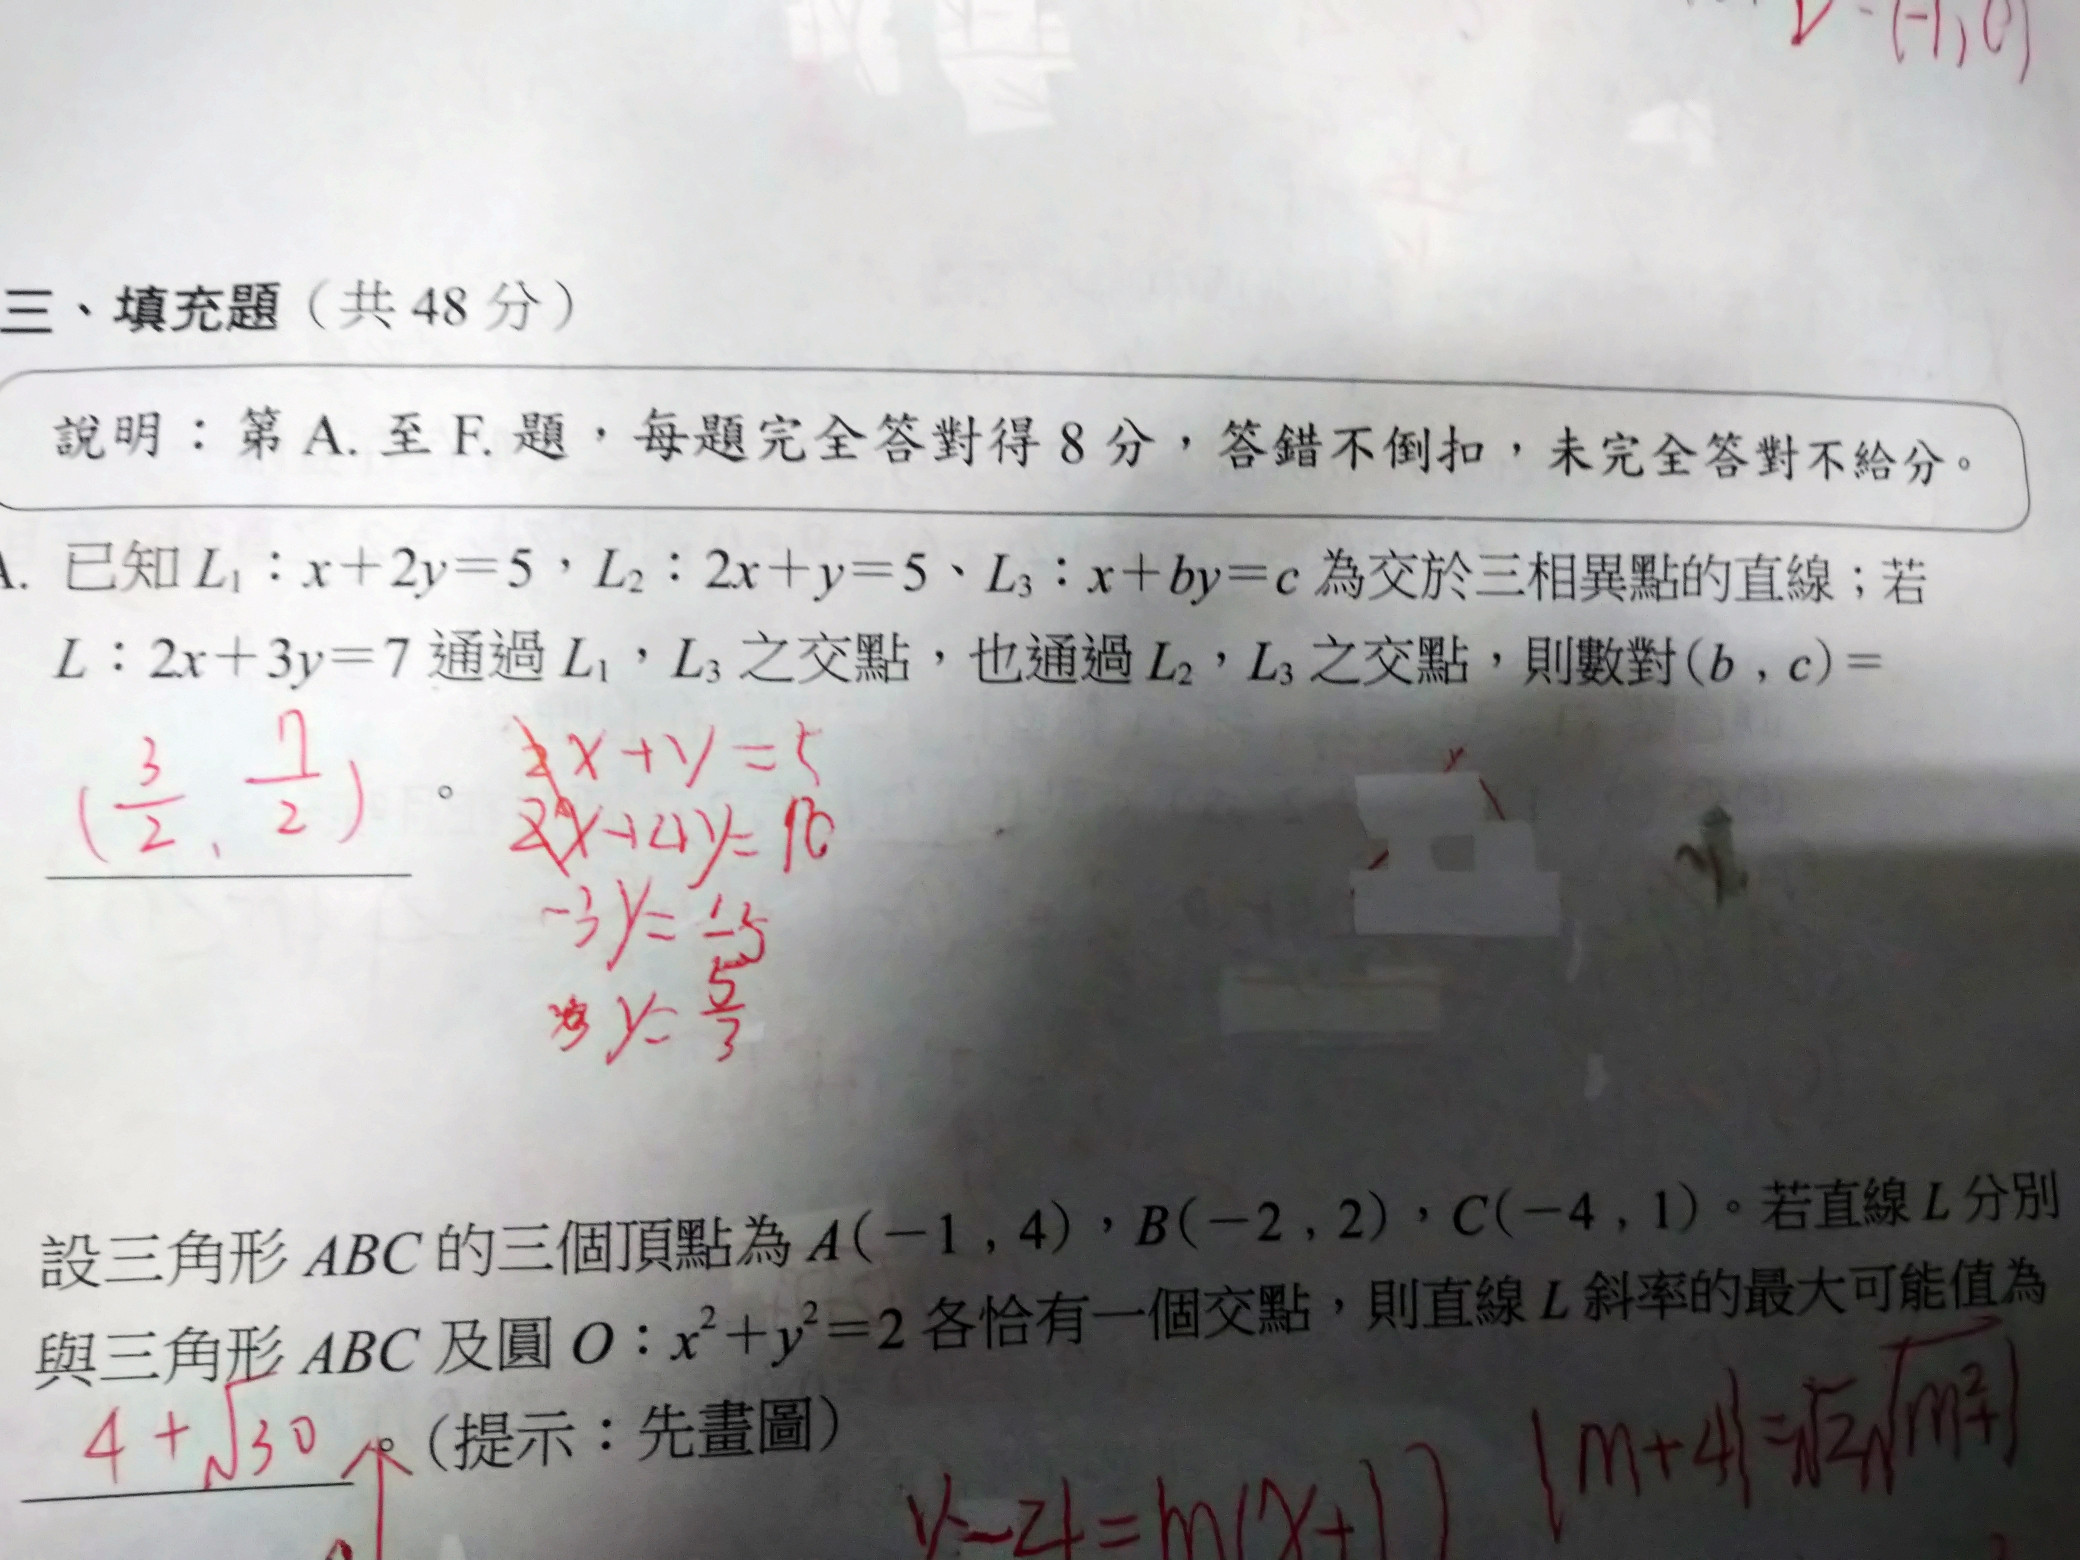 (-1, 0)
三、填充題（共 48 分）
說明：第 A. 至 F. 題，每題完全答對得 8 分，答錯不倒扣，未完全答對不給分。
A. 已知 L₁：x＋2y＝5，L₂：2x＋y＝5、L₃：x＋by＝c 為交於三相異點的直線；若
L：2x＋3y＝7 通過 L₁，L₃ 之交點，也通過 L₂，L₃ 之交點，則數對(b , c)＝
(3/2, 7/2)。
2x+y=5
2x+4y=10
-3y=-5
y=5/3
設三角形 ABC 的三個頂點為 A(－1 , 4)，B(－2 , 2)，C(－4 , 1)。若直線 L 分別
與三角形 ABC 及圓 O：x²＋y²＝2 各恰有一個交點，則直線 L 斜率的最大可能值為
4+√30 。(提示：先畫圖)
|m+4|=√2√m²+1
y-4=m(x+1)